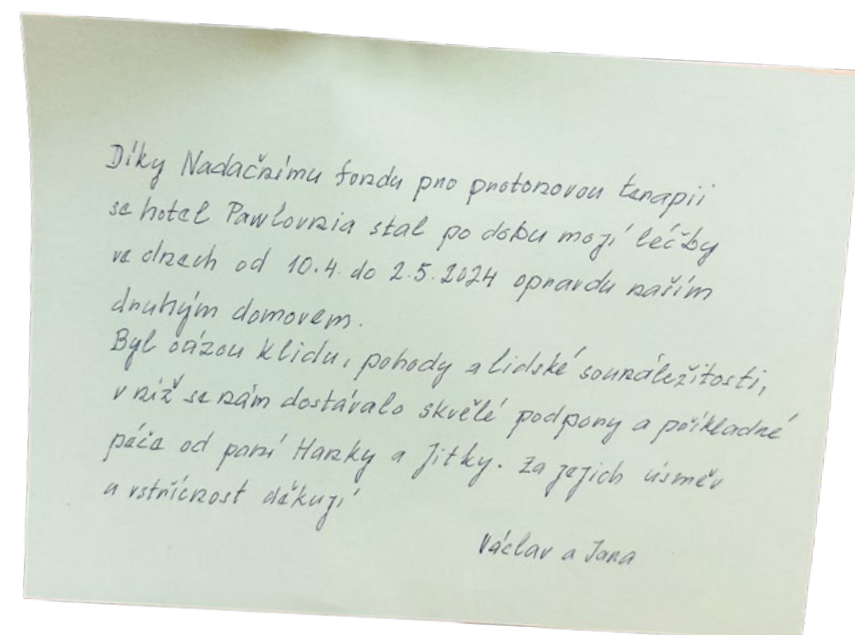 Díky Nadačnímu fondu pro protonovou terapii
se hotel Pawlovnia stal po dobu mojí léčby
ve dnech od 10.4. do 2.5.2024 opravdu naším
druhým domovem.
Byl oázou klidu, pohody a lidské sounáležitosti,
v níž se nám dostávalo skvělé podpory a příkladné
péče od paní Hanky a Jitky. Za jejich úsměv
a vstřícnost děkují
Václav a Jana